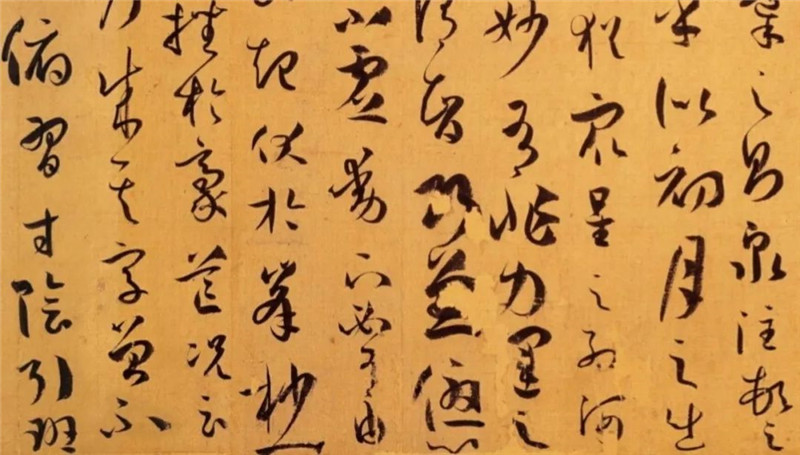 之則泉注頓之
乎似初月之出
猶眾星之列河
妙有非力運之
智巧兼優心
不虛動下必有由
起伏於峯杪一
挫於豪芒況云
乃成其字曾不
俯習寸陰引班